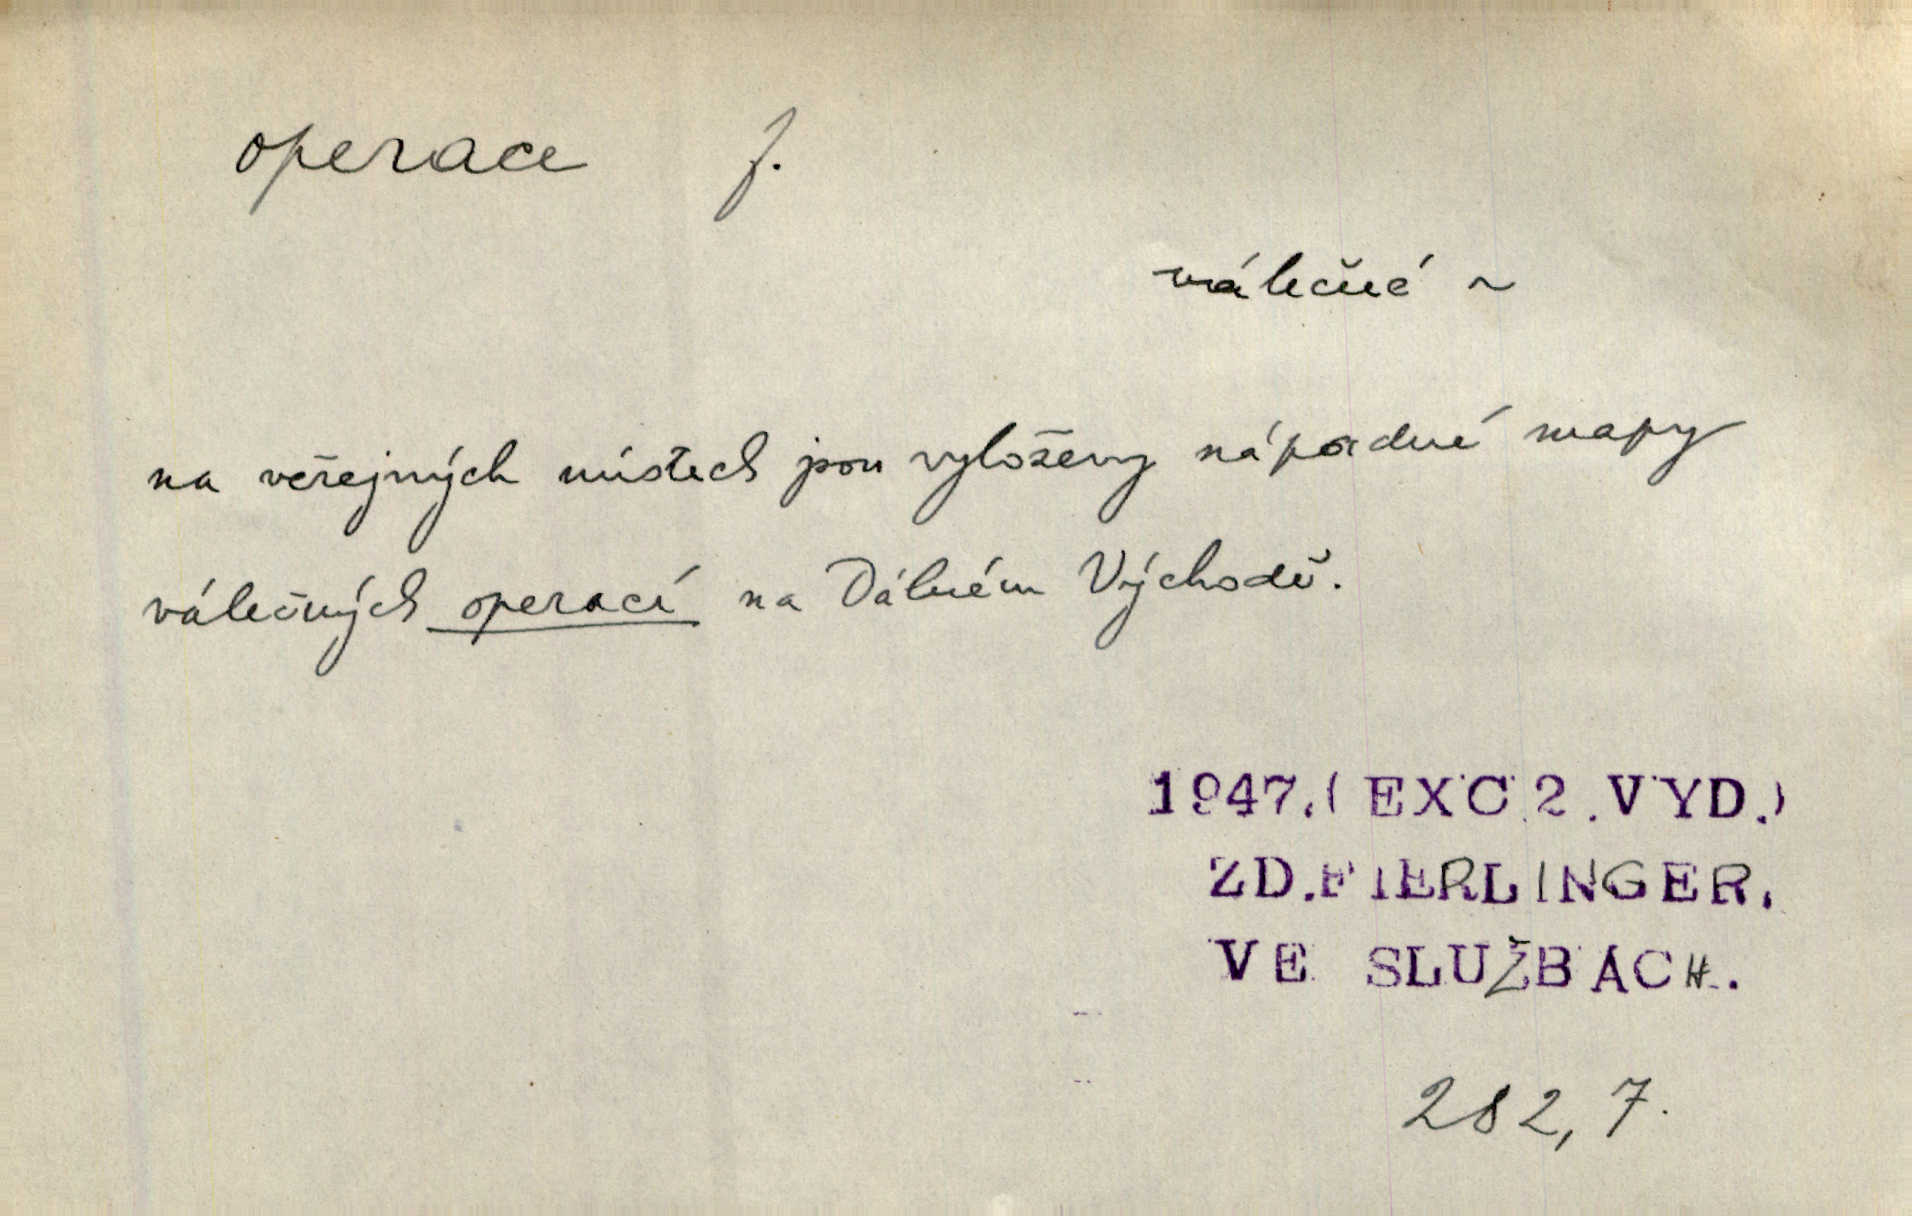 operace f.
válečné ~
na veřejných místech jsou vyloženy nápadné mapy
válečných operací na Dálném Východě.
1947.(EXC.2.VYD.)
ZD.FIERLINGER.
VE SLUŽBÁCH.
282,7.